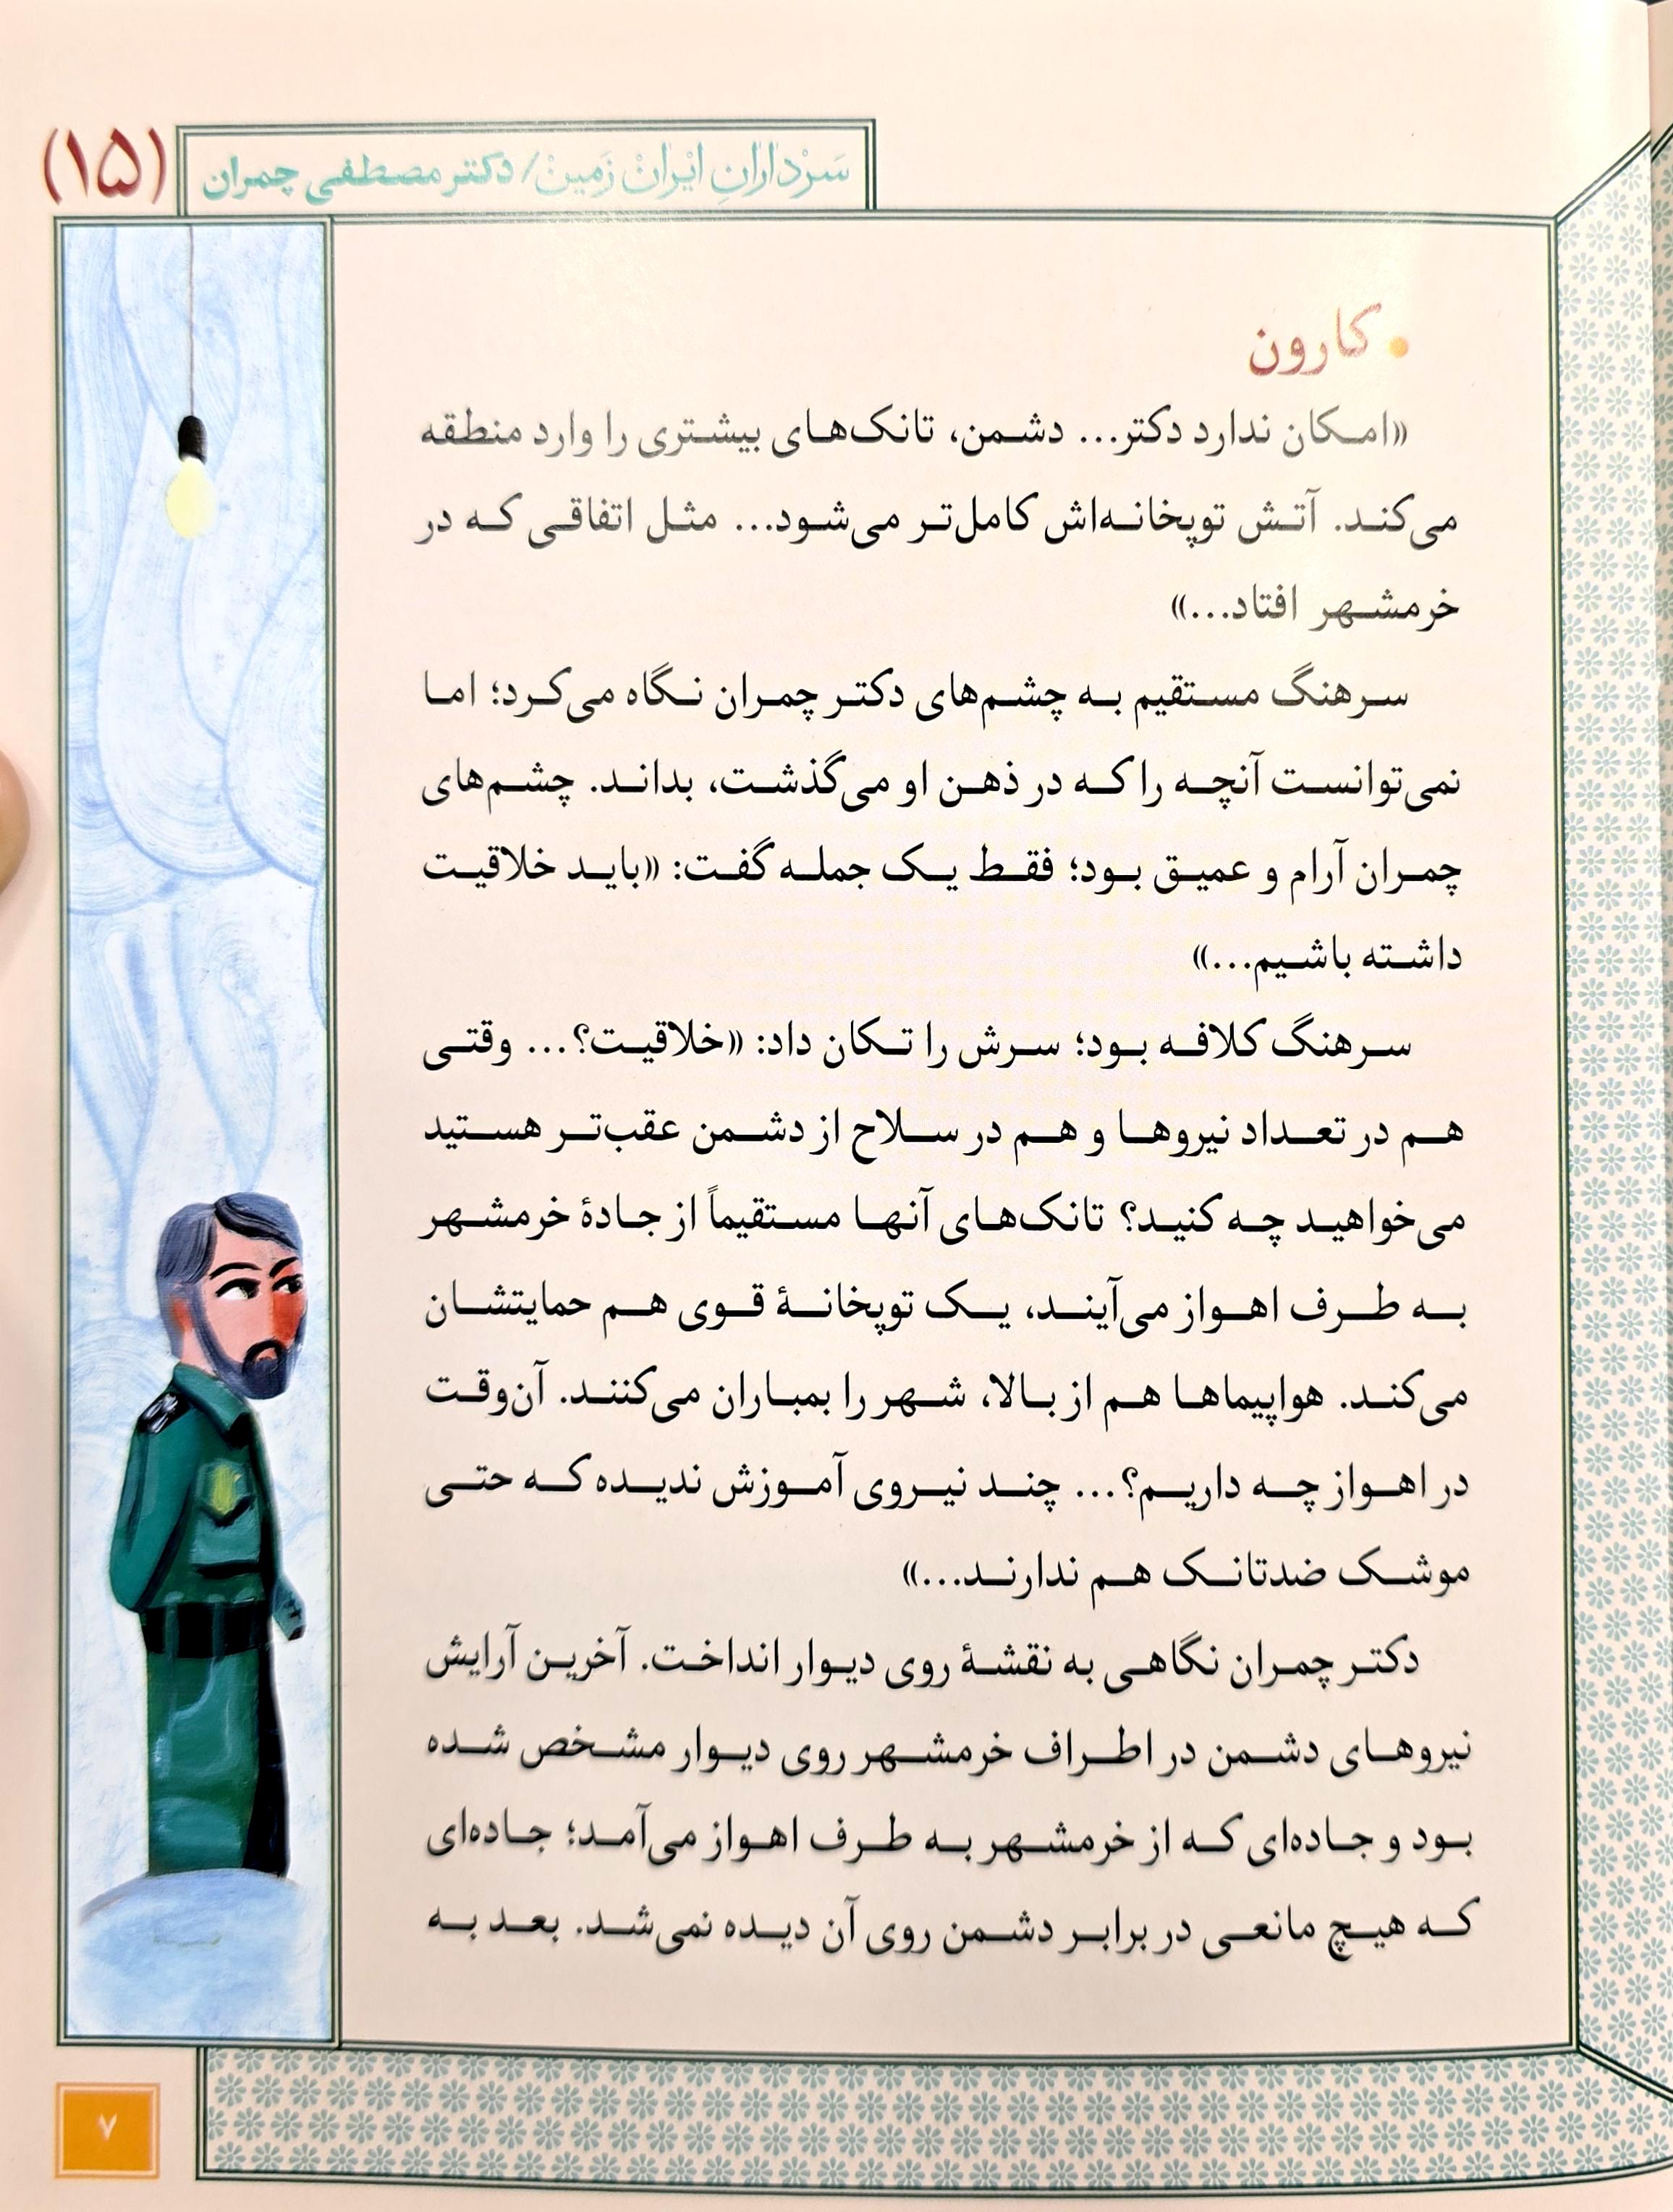 سَرْدارانِ ایْرانْ زَمینْ/ دکتر مصطفی چمران (۱۵)
• کارون
«امکان ندارد دکتر... دشمن، تانک‌های بیشتری را وارد منطقه
می‌کند. آتش توپخانه‌اش کامل‌تر می‌شود... مثل اتفاقی که در
خرمشهر افتاد...»
سرهنگ مستقیم به چشم‌های دکتر چمران نگاه می‌کرد؛ اما
نمی‌توانست آنچه را که در ذهن او می‌گذشت، بداند. چشم‌های
چمران آرام و عمیق بود؛ فقط یک جمله گفت: «باید خلاقیت
داشته باشیم...»
سرهنگ کلافه بود؛ سرش را تکان داد: «خلاقیت؟... وقتی
هم در تعداد نیروها و هم در سلاح از دشمن عقب‌تر هستید
می‌خواهید چه کنید؟ تانک‌های آنها مستقیماً از جادۀ خرمشهر
به طرف اهواز می‌آیند، یک توپخانۀ قوی هم حمایتشان
می‌کند. هواپیماها هم از بالا، شهر را بمباران می‌کنند. آن‌وقت
در اهواز چه داریم؟... چند نیروی آموزش ندیده که حتی
موشک ضدتانک هم ندارند...»
دکتر چمران نگاهی به نقشۀ روی دیوار انداخت. آخرین آرایش
نیروهای دشمن در اطراف خرمشهر روی دیوار مشخص شده
بود و جاده‌ای که از خرمشهر به طرف اهواز می‌آمد؛ جاده‌ای
که هیچ مانعی در برابر دشمن روی آن دیده نمی‌شد. بعد به
۷